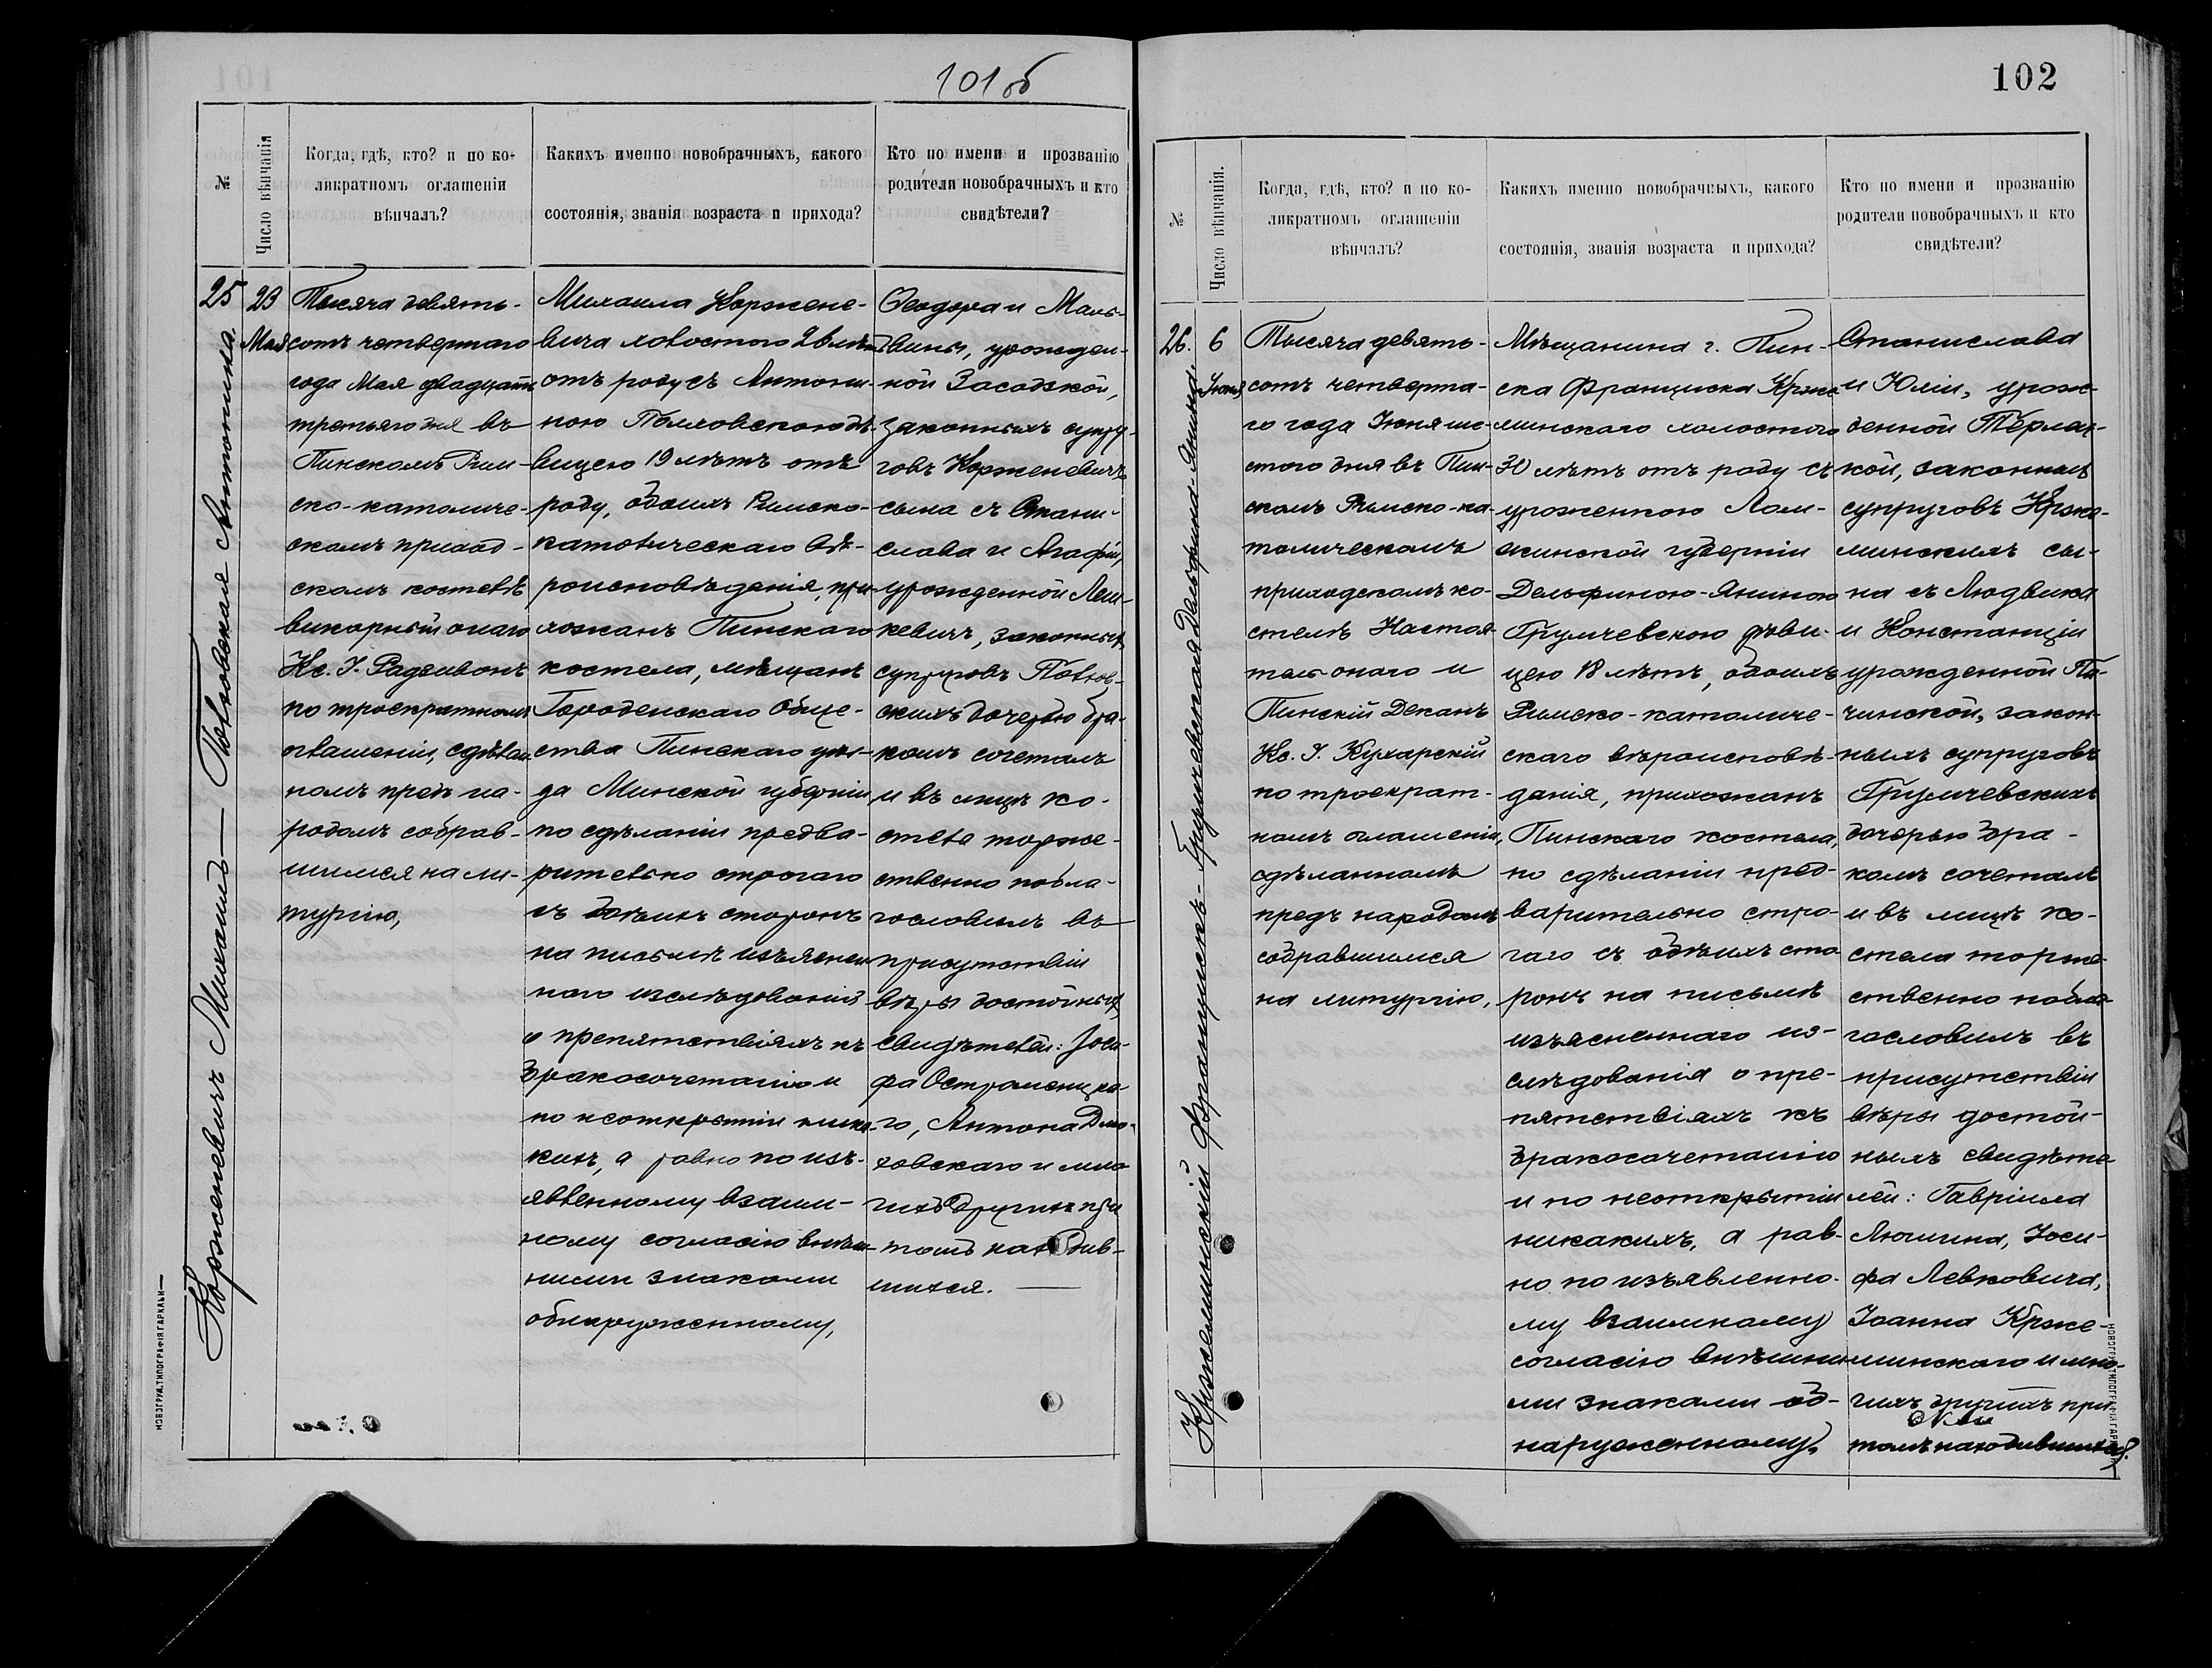 101об
№
Число вѣнчанія
Когда, гдѣ, кто? и по ко-
ликратномъ оглашеніи
вѣнчалъ?
Какихъ именно новобрачныхъ, какого
состоянія, званія возраста и прихода?
Кто по имени и прозванію
родители новобрачныхъ и кто
свидѣтели?
Корженевичъ Михаилъ — Полховская Антонина.
25
23
Мая
Тысяча девять-
сотъ четвертаго
года Мая двадцать
третьяго дня въ
Пинскомъ Рим-
ско-католиче-
скомъ приход-
скомъ костелѣ
викарный онаго
Кс. І. Радзивонъ
по троекратномъ
оглашеніи, сдѣлан-
номъ предъ на-
родомъ собрав-
шимся на ли-
тургію,
Михаила Коржене-
вича холостого 26 лѣтъ
отъ роду съ Антони-
ною Полховскою дѣ-
вицею 19 лѣтъ отъ
роду, обоихъ Римско-
католическаго вѣ-
роисповѣданія, при-
хожанъ Пинскаго
костела, мѣщанъ
Городенскаго обще-
ства Пинскаго уѣз-
да Минской губерніи
по сдѣланіи предва-
рительно строгаго
съ обѣихъ сторонъ
на письмѣ изъяснен-
наго изслѣдованія
о препятствіяхъ къ
бракосочетанію и
по неоткрытіи ника-
кихъ, а равно по изъ-
явленному взаим-
ному согласію внѣш-
ними знаками
обнаруженному,
Ѳеодора и Маль-
вины, урожден-
ной Засадской,
законныхъ супру-
говъ Корженевичъ
сына съ Стани-
слава и Агафіи,
урожденной Леш-
кевичъ, законныхъ
супруговъ Полхов-
скихъ дочерью бра-
комъ сочеталъ
и въ лицѣ ко-
стела торже-
ственно побла-
гословилъ въ
присутствіи
вѣры достойныхъ
свидѣтелей: Іоси-
фа Остромецка-
го, Антона Дмо-
ховскаго и мно-
гихъ другихъ при
томъ находив-
шихся. —
НОВОГРУД. ТИПОГРАФІЯ ГАРКАВИ
102
№
Число вѣнчанія.
Когда, гдѣ, кто? и по ко-
ликратномъ оглашеніи
вѣнчалъ?
Какихъ именно новобрачныхъ, какого
состоянія, званія возраста и прихода?
Кто по имени и прозванію
родители новобрачныхъ и кто
свидѣтели?
Кржеминскій Францискъ - Грумчевская Дельфина-Янина.
26.
6
Іюня
Тысяча девять-
сотъ четверта-
го года Іюня ше-
стого дня въ Пин-
скомъ Римско-ка-
толическомъ
приходскомъ ко-
стелѣ Настоя-
тель онаго и
Пинскій Деканъ
Кс. І. Кухарскій
по троекрат-
номъ оглашеніи,
сдѣланномъ
предъ народомъ
собравшимся
на литургію,
Мѣщанина г. Пин-
ска Франциска Крже-
минскаго холостого
30 лѣтъ отъ роду съ
уроженкою Лом-
жинской губерніи
Дельфиною-Яниною
Грумчевскою дѣви-
цею 18 лѣтъ, обоихъ
Римско-католиче-
скаго вѣроисповѣ-
данія, прихожанъ
Пинскаго костела,
по сдѣланіи пред-
варительно стро-
гаго съ обѣихъ сто-
ронъ на письмѣ
изъясненнаго из-
слѣдованія о пре-
пятствіяхъ къ
бракосочетанію
и по неоткрытіи
никакихъ, а рав-
но по изъявленно-
му взаимному
согласію внѣшни-
ми знаками об-
наруженному,
Станислава
и Юліи, урож-
денной Терлец-
кой, законныхъ
супруговъ Крже-
минскихъ сы-
на съ Людвика
и Констанціи
урожденной Па-
чинской, закон-
ныхъ супруговъ
Грумчевскихъ
дочерью бра-
комъ сочеталъ
и въ лицѣ ко-
стела торже-
ственно побла-
гословилъ въ
присутствіи
вѣры достой-
ныхъ свидѣте-
лей: Гавріила
Люшина, Іоси-
фа Левковича,
Іоанна Крже-
минскаго и мно-
гихъ другихъ при
томъ находившихся.
НОВОГРУД. ТИПОГРАФІЯ ГАРКАВИ